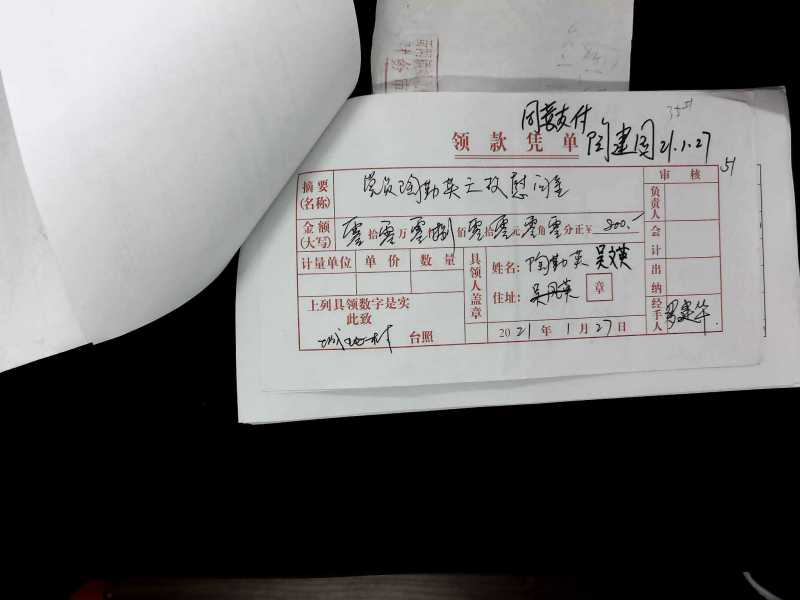 同意支付
领款凭单 陶建国 21.1.27
51
摘要(名称) 党员陶勤英亡故慰问金 审核
负责人
金额(大写) 零拾零万零仟捌佰零拾零元零角零分正￥800.- 会计
计量单位 单价 数量 具领人盖章 姓名: 陶勤英 吴文英 出纳
住址: 章
上列具领数字是实
此致
台照 2021年1月27日 经手人